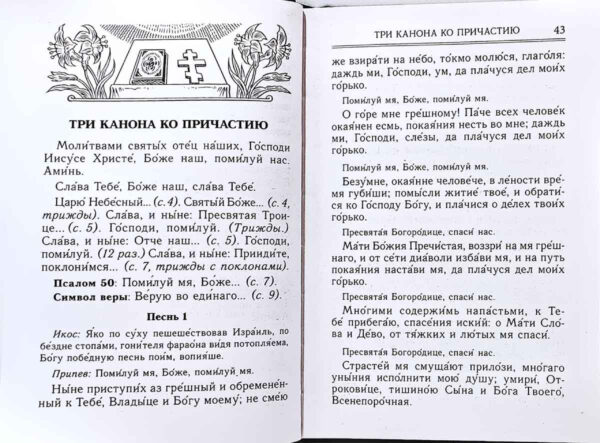 ТРИ КАНОНА КО ПРИЧАСТИЮ
Моли́твами святы́х оте́ц на́ших, Го́споди
Иису́се Христе́, Бо́же наш, поми́луй нас.
Ами́нь.
Сла́ва Тебе́, Бо́же наш, сла́ва Тебе́.
Царю́ Небе́сный... (с. 4). Святы́й Бо́же... (с. 4,
трижды). Сла́ва, и ны́не: Пресвята́я Тро́и-
це... (с. 5). Го́споди, поми́луй. (Трижды.)
Сла́ва, и ны́не: О́тче наш... (с. 5). Го́споди,
поми́луй. (12 раз.) Сла́ва, и ны́не: Прииди́те,
поклони́мся... (с. 7, трижды с поклонами).
Псалом 50: Поми́луй мя, Бо́же... (с. 7).
Символ веры: Ве́рую во еди́наго... (с. 9).
Песнь 1
Икос: Я́ко по су́ху пешеше́ствовав Изра́иль, по
бе́здне стопа́ми, гони́теля фарао́на ви́дя потопля́ема,
Бо́гу побе́дную песнь пои́м, вопия́ше.
Припев: Поми́луй мя, Бо́же, поми́луй мя.
Ны́не приступи́х аз гре́шный и обремене́н-
ный к Тебе́, Влады́це и Бо́гу моему́; не сме́ю
ТРИ КАНОНА КО ПРИЧАСТИЮ 43
же взира́ти на не́бо, то́кмо молю́ся, глаго́ля:
даждь ми, Го́споди, ум, да пла́чуся дел мои́х
го́рько.
Поми́луй мя, Бо́же, поми́луй мя.
О го́ре мне гре́шному! Па́че всех челове́к
окая́нен есмь, покая́ния несть во мне; даждь
ми, Го́споди, сле́зы, да пла́чуся дел мои́х
го́рько.
Поми́луй мя, Бо́же, поми́луй мя.
Безу́мне, окая́нне челове́че, в ле́ности вре́-
мя губи́ши; помы́сли житие́ твое́, и обрати́ся
ко Го́споду Бо́гу, и пла́чися о де́лех твои́х
го́рько.
Пресвята́я Богоро́дице, спаси́ нас.
Ма́ти Бо́жия Пречи́стая, воззри́ на мя гре́ш-
наго, и от се́ти диа́воли изба́ви мя, и на путь
покая́ния наста́ви мя, да пла́чуся дел мои́х
го́рько.
Пресвята́я Богоро́дице, спаси́ нас.
Мно́гими содержи́мь напа́стьми, к Те-
бе́ прибега́ю, спасе́ния иски́й: о Ма́ти Сло́-
ва и Де́во, от тя́жких и лю́тых мя спаси́.
Пресвята́я Богоро́дице, спаси́ нас.
Страсте́й мя смуща́ют прило́зи, мно́гаго
уны́ния испо́лнити мою́ ду́шу; умири́, От-
рокови́це, тишино́ю Сы́на и Бо́га Твоего́,
Всенепоро́чная.